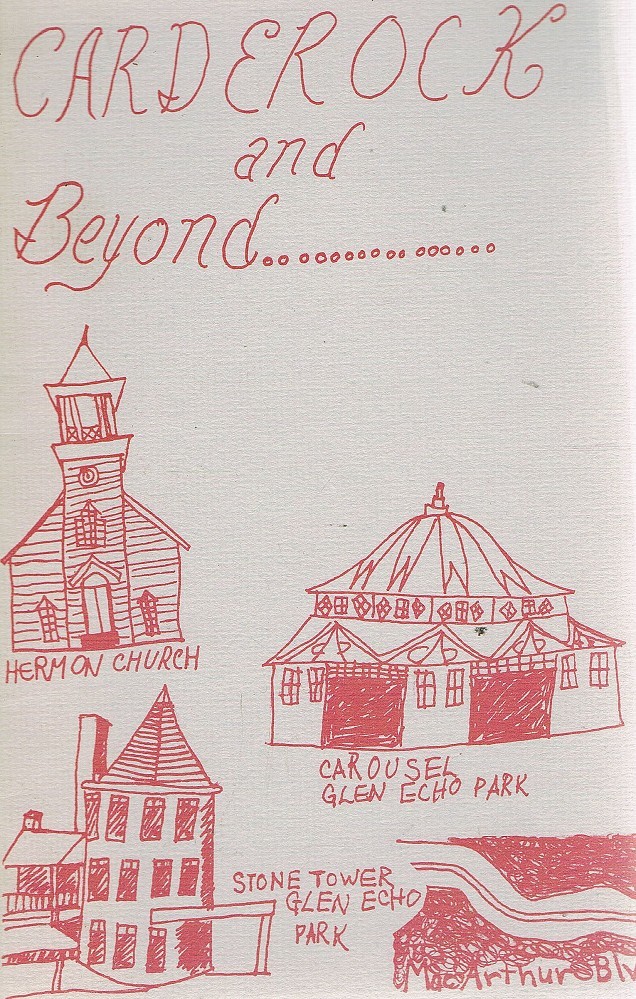 CARDEROCK
and
Beyond..................
HERMON CHURCH
CAROUSEL
GLEN ECHO PARK
STONE TOWER
GLEN ECHO
PARK
MacArthur Blv